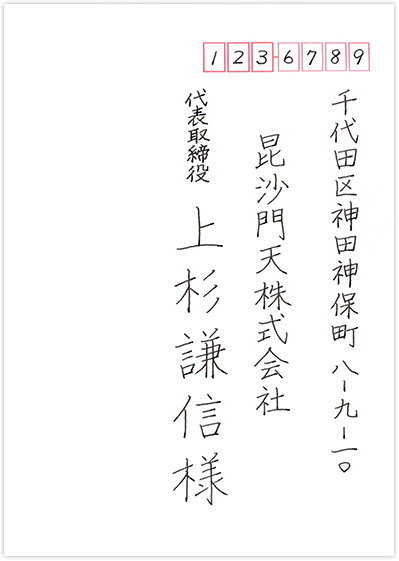 123-6789
千代田区神田神保町 八-九-一〇
毘沙門天株式会社
代表取締役 上杉謙信様